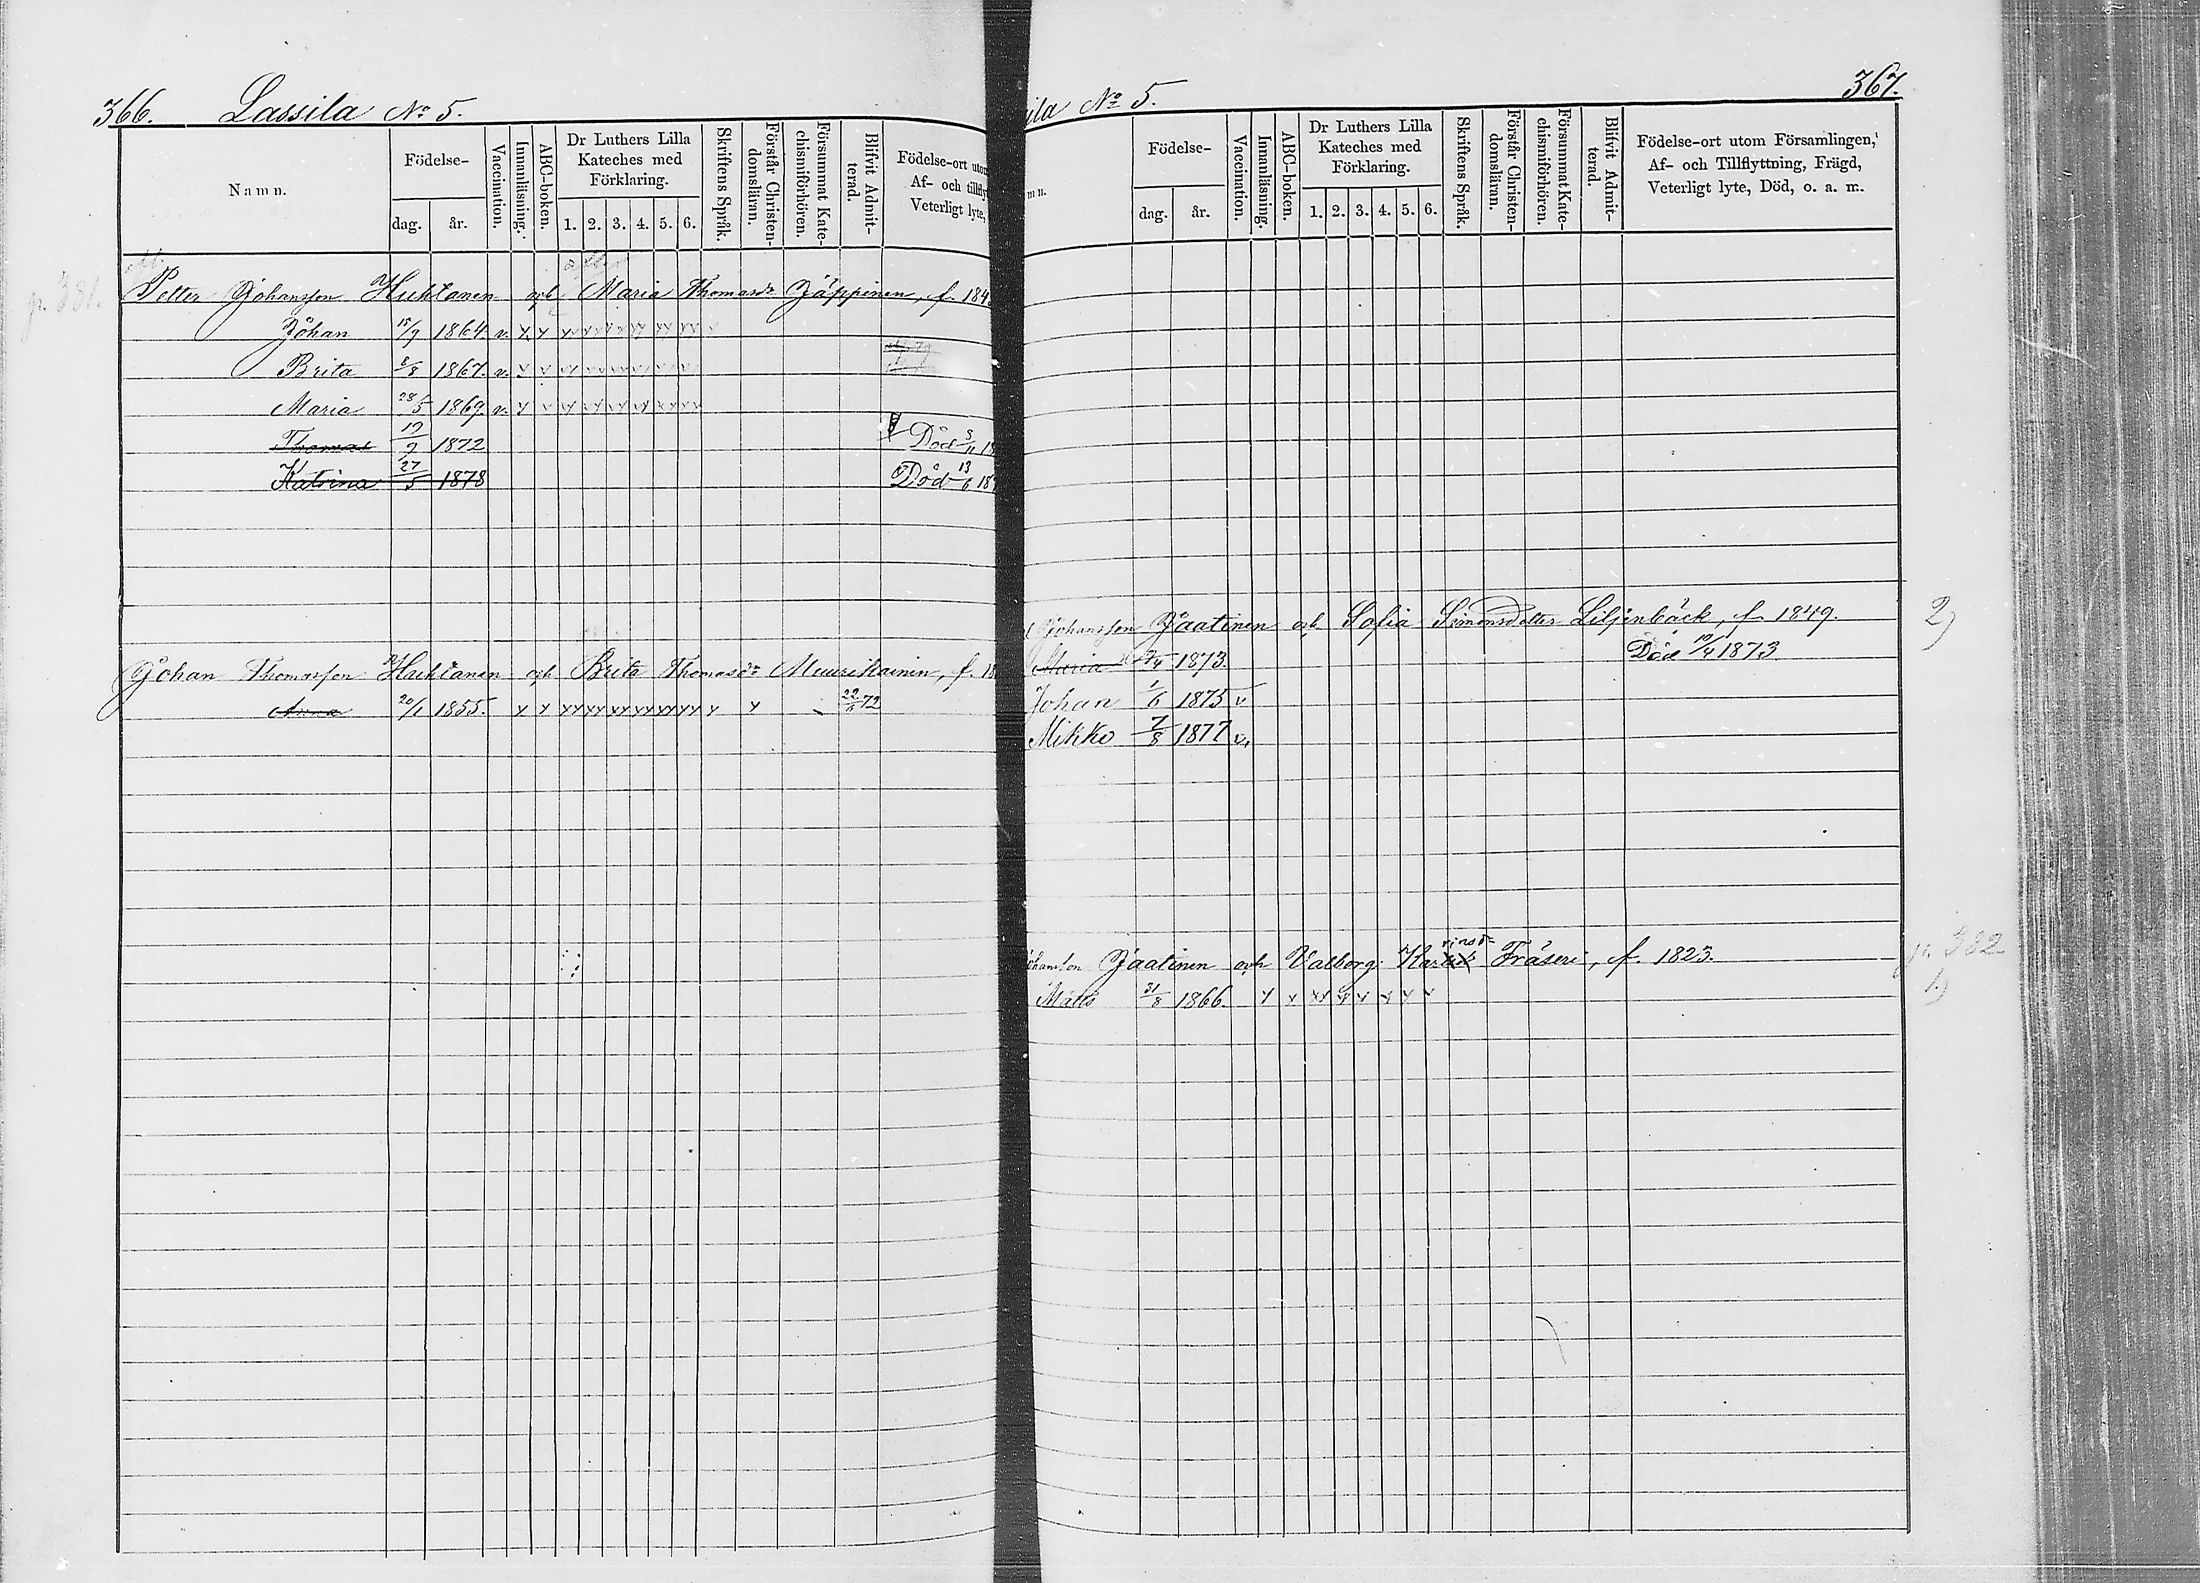 366. Lassila No 5.
Namn.
Födelse-
dag. år.
Vaccination.
Innanläsning.
ABC-boken.
Dr Luthers Lilla Kateches med Förklaring.
1. 2. 3. 4. 5. 6.
Skriftens Språk.
Förstår Christen-domsläran.
Försummat Kate-chismiförhören.
Blifvit Admit-terad.
Födelse-ort utom
Af- och tillfly
Veterligt lyte,
p. 381.
Petter Johansson Huhtanen och Maria Thomasdr Jäppinen, f. 184
Johan 15/9 1864. v. x x x x x x x x
Brita 8/8 1867. v. x x x x x x x x
Maria 28/5 1869. v. x x x x x x x x
Thomas 19/9 1872 Död 3/11 18
Katrina 27/5 1878 Död 13/6 18
Johan Thomasson Huhtanen och Brita Thomasdr Muuriskainen, f. 18
Anna 20/1 1855. x x xx xx xx xx xx xx x x 22/6 72
ila No 5. 367.
mn.
Födelse-
dag. år.
Vaccination.
Innanläsning.
ABC-boken.
Dr Luthers Lilla Kateches med Förklaring.
1. 2. 3. 4. 5. 6.
Skriftens Språk.
Förstår Christen-domsläran.
Försummat Kate-chismiförhören.
Blifvit Admit-terad.
Födelse-ort utom Församlingen,
Af- och Tillflyttning, Frägd,
Veterligt lyte, Död, o. a. m.
Johansson Jaatinen och Sofia Simonsdotter Liljenbäck, f. 1849. 2)
Maria 1873. Död 10/4 1873
Johan 1/6 1875 v
Mikko 7/8 1877 v.
hansson Jaatinen och Valborg Karinsdr Träseri, f. 1823. p. 382
Matts 31/8 1866. x x xx x x x x x 1)